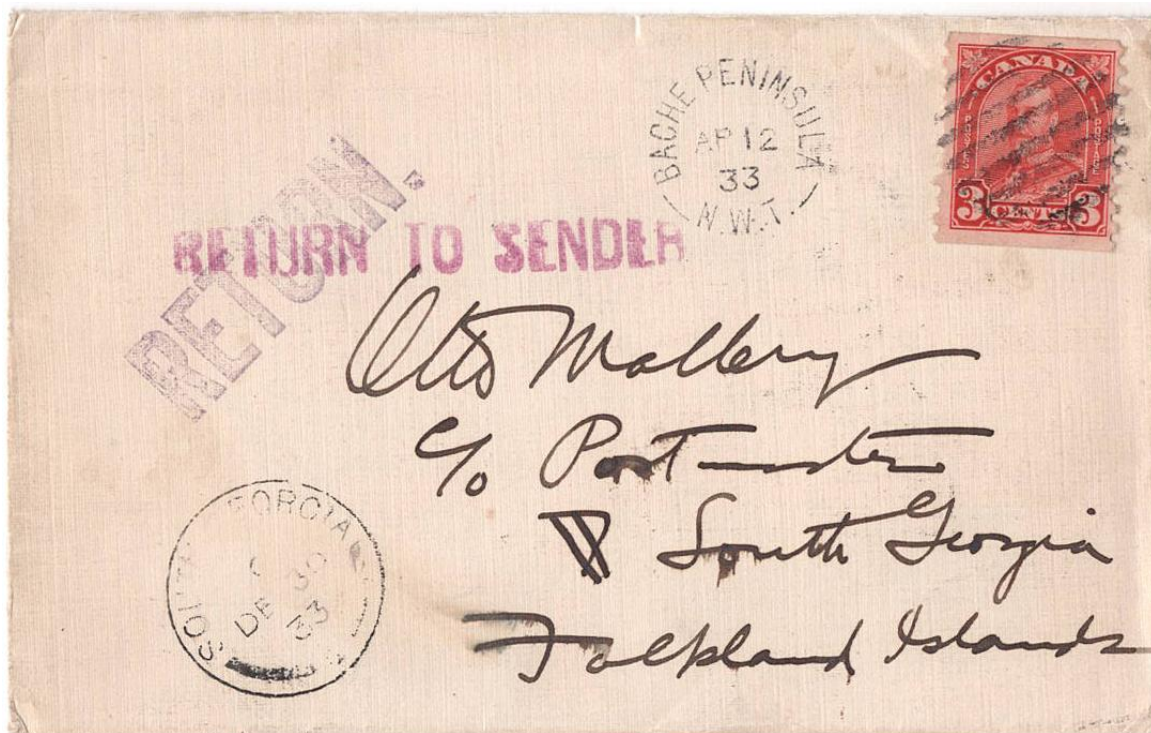 BACHE PENINSULA
AP 12
33
N.W.T.
CANADA
POSTES POSTAGE
3 CENTS 3
RETURN.
RETURN TO SENDER
Otto Mallery
c/o Postmaster
South Georgia
Falkland Islands
SOUTH GEORGIA
DE 30
33